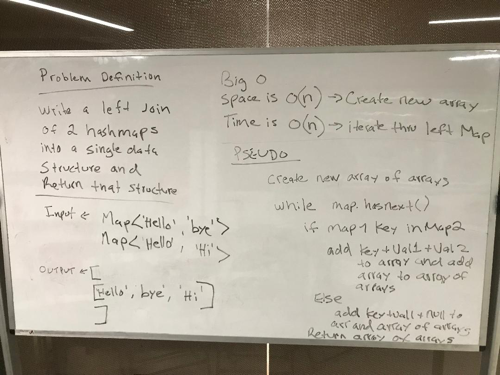 Problem Definition
Write a left Join
of 2 hashmaps
into a single data
Structure and
Return that structure
Input ← Map<'Hello', 'bye'>
Map<'Hello', 'Hi'>
OUTPUT ← [
['Hello', 'bye', 'Hi']
]
Big O
Space is O(n) → Create new array
Time is O(n) → iterate thru left Map
PSEUDO
Create new array of arrays
while map.hasnext()
if map1 key in Map2
add key + Val1 + Val2
to array and add
array to array of
arrays
Else
add key + val1 + null to
arr and array of arrays
Return array of arrays